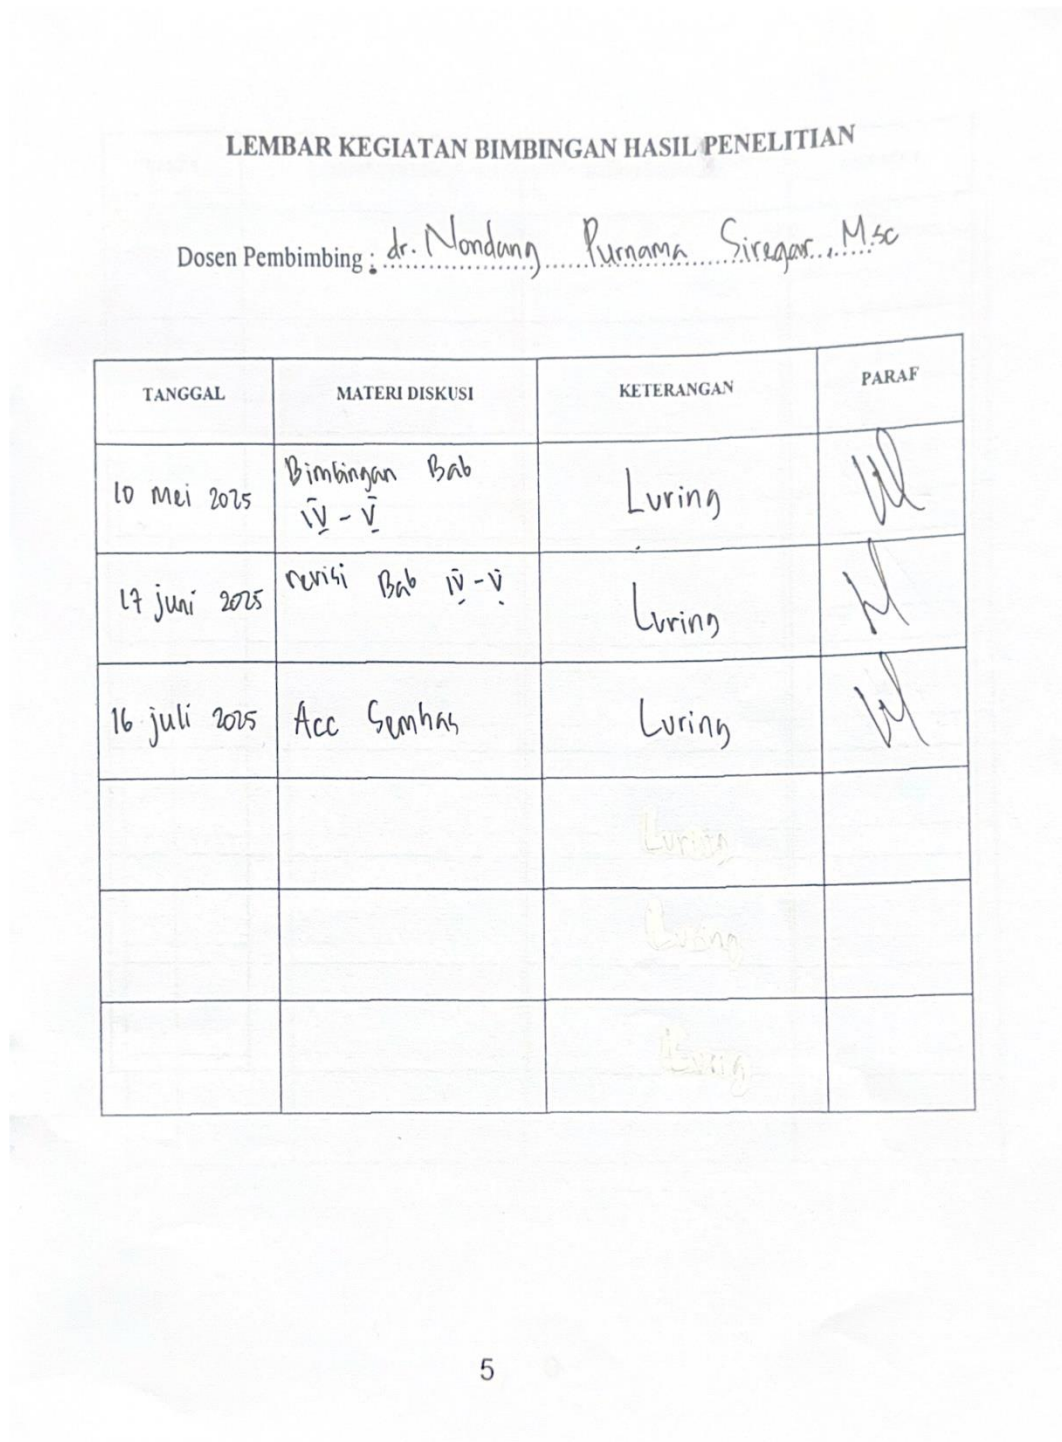 LEMBAR KEGIATAN BIMBINGAN HASIL PENELITIAN
Dosen Pembimbing : dr. Nondang Purnama Siregar, M.sc
TANGGAL MATERI DISKUSI KETERANGAN PARAF
10 Mei 2025 Bimbingan Bab IV - V Luring
17 juni 2025 revisi Bab IV - V Luring
16 juli 2025 Acc Semhas Luring
Luring
Luring
Luring
5